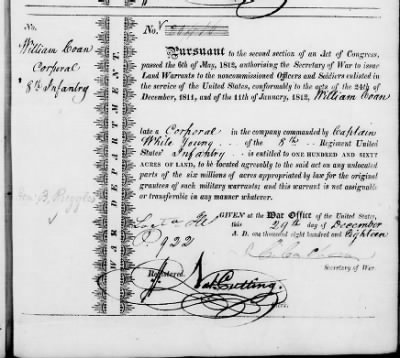 No.
William Coan
Corporal
8th Infantry
WAR DEPARTMENT.
No.
Pursuant to the second section of an Act of Congress,
passed the 6th of May, 1812, authorising the Secretary of War to issue
Land Warrants to the noncommissioned Officers and Soldiers enlisted in
the service of the United States, conformably to the acts of the 24th of
December, 1811, and of the 11th of January, 1812, William Coan
late a Corporal in the company commanded by Captain
White Young of the 8th Regiment United
States' Infantry is entitled to ONE HUNDRED AND SIXTY
ACRES OF LAND, to be located agreeably to the said act on any unlocated
parts of the six millions of acres appropriated by law for the original
grantees of such military warrants; and this warrant is not assignable
or transferable in any manner whatever.
GIVEN at the War Office of the United States,
this 29th day of December
A. D. one thousand eight hundred and Eighteen
922
Secretary of War.
Registered.
Nat. Cutting.